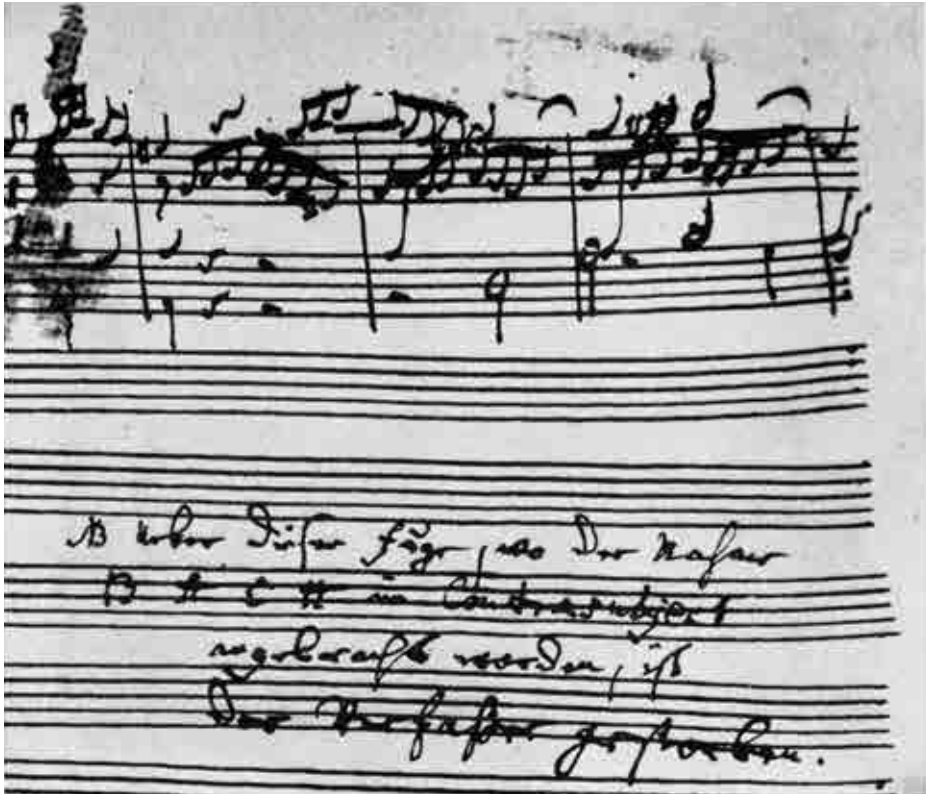 NB Ueber dieser Fuge, wo der Nahme
B A C H im Contrasubject
angebracht worden, ist
der Verfaßer gestorben.